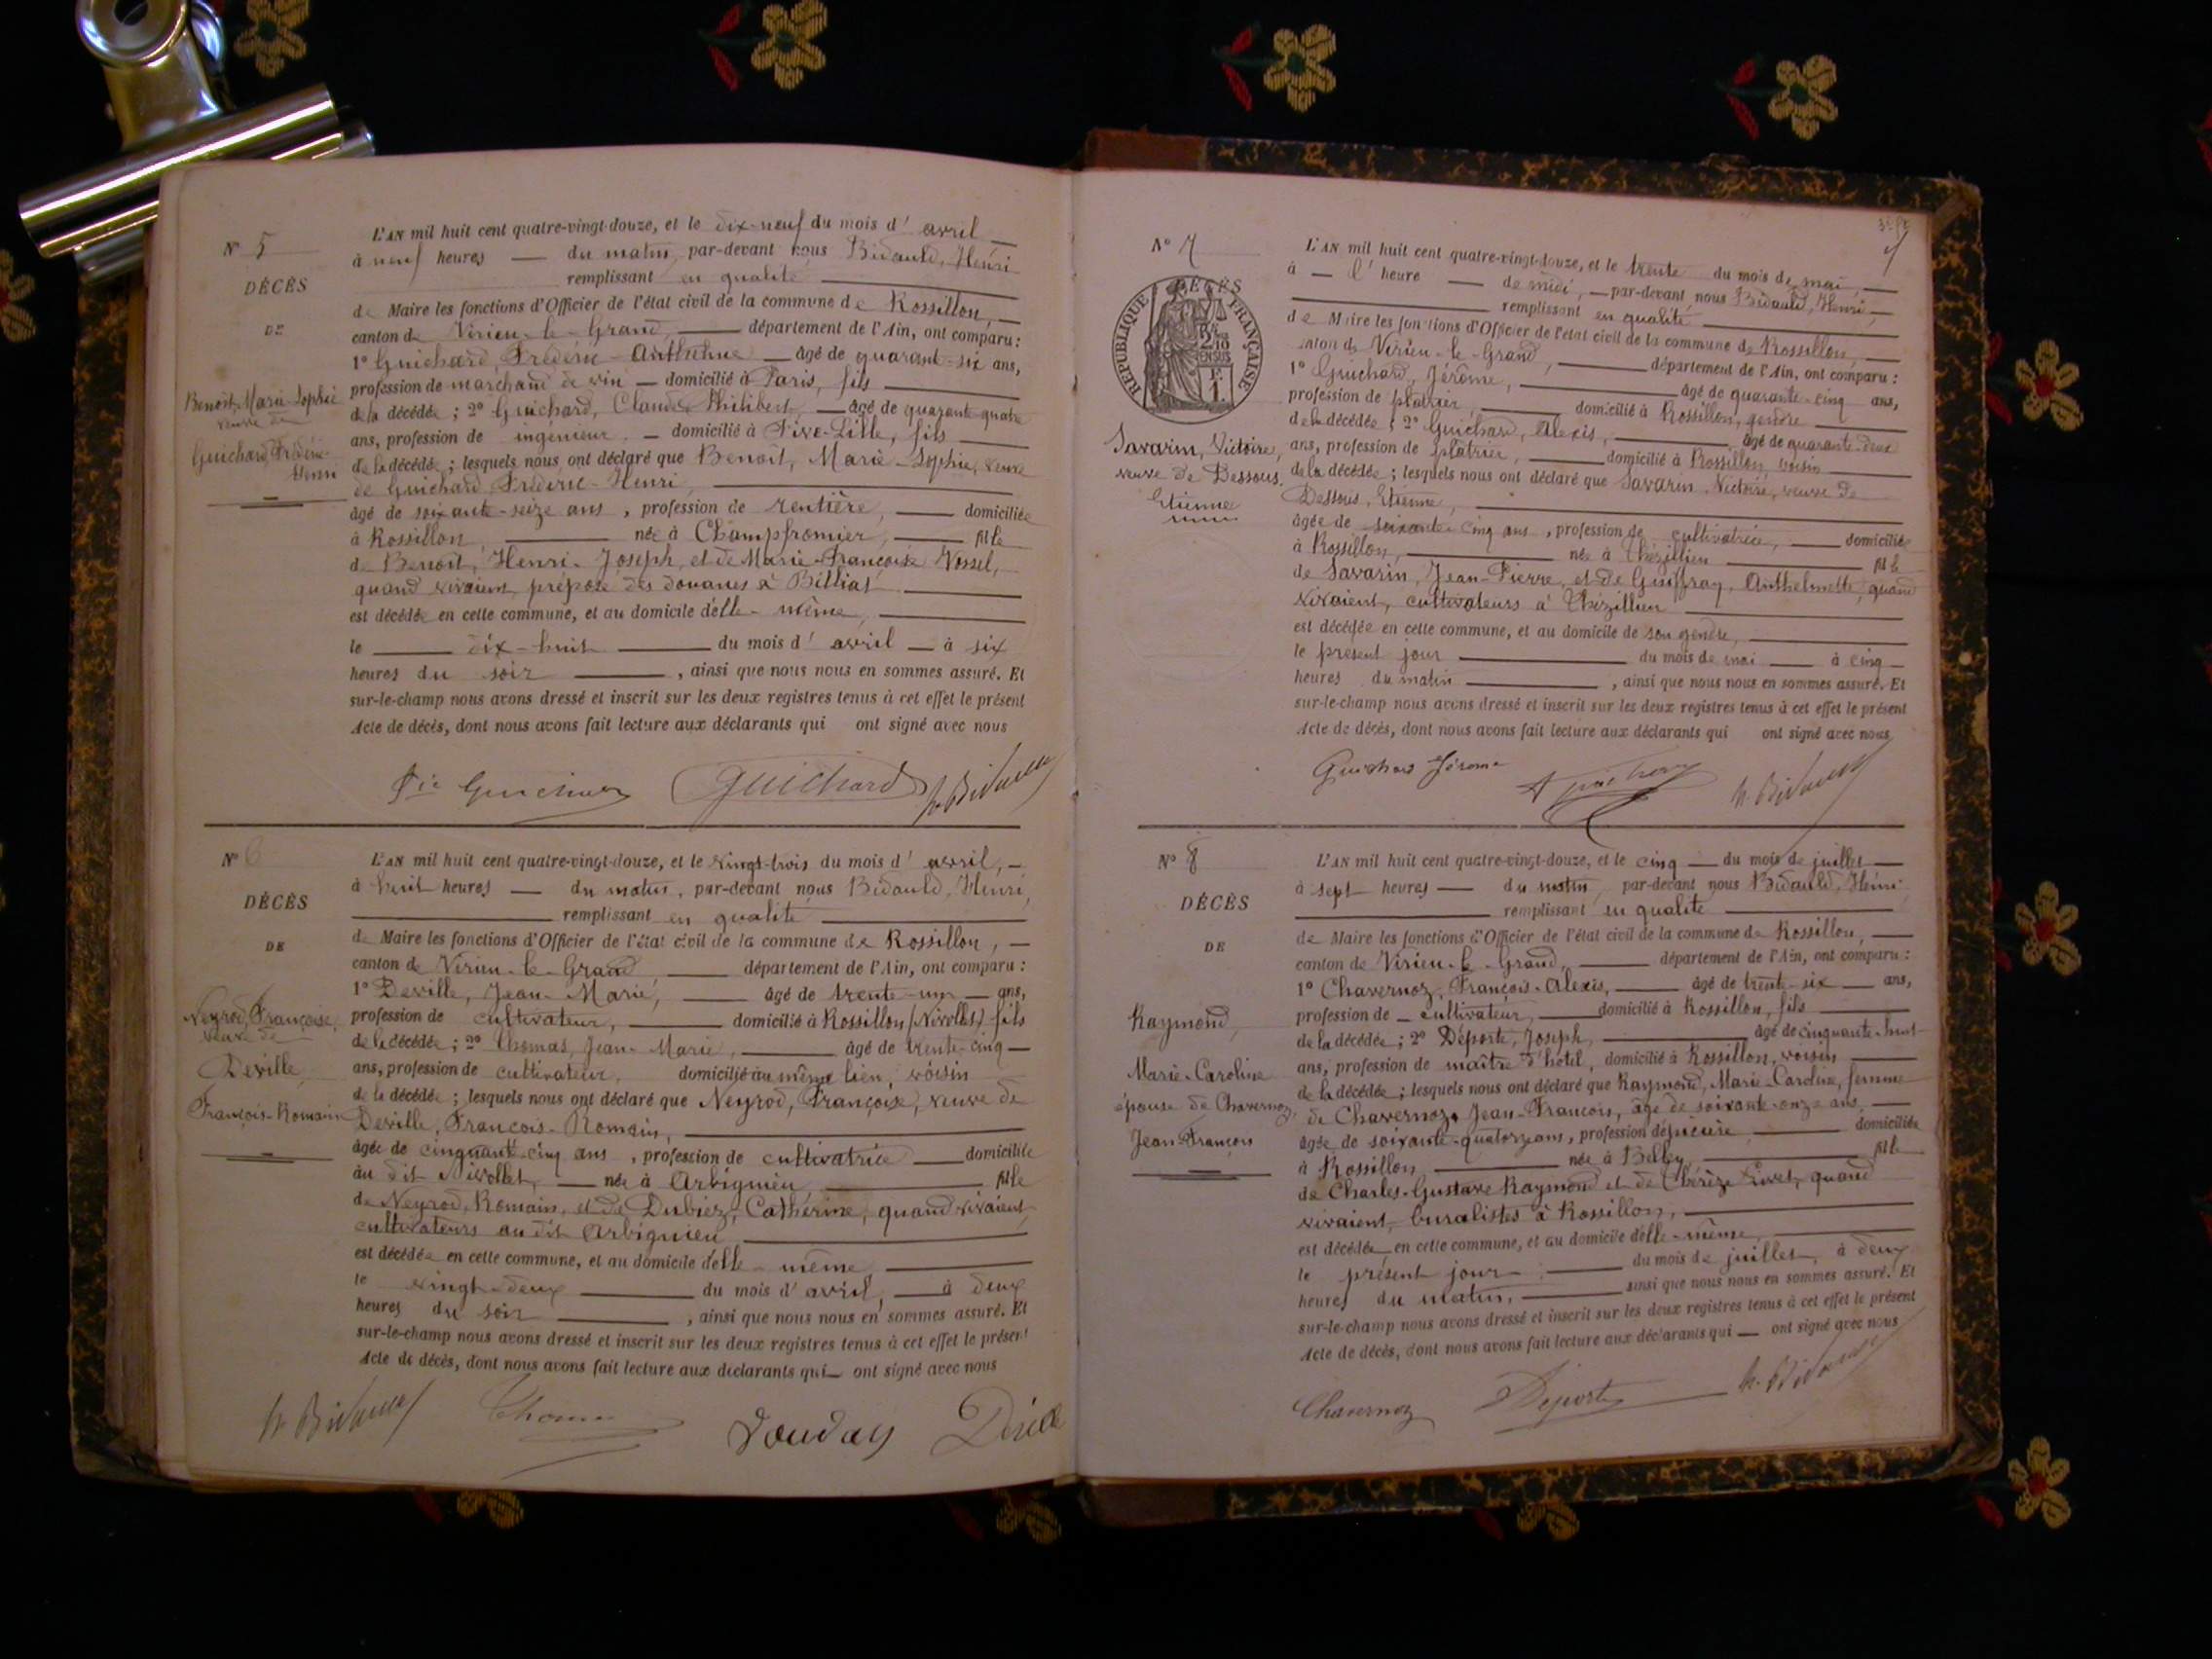 N° 5
DÉCÈS
DE
Benoit, Marie-Sophie
veuve de
Guichard Frédéric-
Henri
L'AN mil huit cent quatre-vingt-douze, et le dix-neuf du mois d' avril
à neuf heures du matin, par-devant nous Bidauld, Henri
remplissant en qualité
de Maire les fonctions d'Officier de l'état civil de la commune de Rossillon,
canton de Virieu-le-Grand, département de l'Ain, ont comparu :
1° Guichard, Frédéric-Anthelme âgé de quarante-six ans,
profession de marchand de vin domicilié à Paris, fils
de la décédée ; 2° Guichard, Claude Philibert, âgé de quarante-quatre
ans, profession de ingénieur, domicilié à Fives-Lille, fils
de la décédée ; lesquels nous ont déclaré que Benoit, Marie-Sophie, veuve
de Guichard Frédéric-Henri,
âgé de soixante-seize ans, profession de rentière, domiciliée
à Rossillon, née à Champfromier, fille
de Benoit, Henri-Joseph, et de Marie-Françoise Vossel,
quand vivaient, préposé des douanes à Billiat
est décédée en cette commune, et au domicile d'elle-même,
le dix-huit du mois d' avril à six
heures du soir, ainsi que nous nous en sommes assuré. Et
sur-le-champ nous avons dressé et inscrit sur les deux registres tenus à cet effet le présent
Acte de décès, dont nous avons fait lecture aux déclarants qui ont signé avec nous
Guichard H. Bidauld
N° 6
DÉCÈS
DE
Neyrod, Françoise,
veuve de
Deville
François-Romain
L'AN mil huit cent quatre-vingt-douze, et le vingt-trois du mois d' avril,
à huit heures du matin, par-devant nous Bidauld, Henri,
remplissant en qualité
de Maire les fonctions d'Officier de l'état civil de la commune de Rossillon,
canton de Virieu-le-Grand département de l'Ain, ont comparu :
1° Deville, Jean-Marie, âgé de trente-un ans,
profession de cultivateur, domicilié à Rossillon (Nivollet) fils
de la décédée ; 2° Thomas, Jean-Marie, âgé de trente-cinq
ans, profession de cultivateur, domicilié au même lieu, voisin
de la décédée ; lesquels nous ont déclaré que Neyrod, Françoise, veuve de
Deville, François-Romain,
âgée de cinquante-cinq ans, profession de cultivatrice domiciliée
au dit Nivollet, née à Arbignieu fille
de Neyrod, Romain, et de Dubiez, Catherine, quand vivaient
cultivateurs au dit Arbignieu
est décédée en cette commune, et au domicile d'elle-même
le vingt-deux du mois d' avril, à deux
heures du soir, ainsi que nous nous en sommes assuré. Et
sur-le-champ nous avons dressé et inscrit sur les deux registres tenus à cet effet le présent
Acte de décès, dont nous avons fait lecture aux déclarants qui ont signé avec nous
H. Bidauld Thomas
N° 7
DÉCÈS
RÉPUBLIQUE FRANÇAISE
Savarin, Victoire,
veuve de Dessous,
Etienne
L'AN mil huit cent quatre-vingt-douze, et le trente du mois de mai,
à l' heure de midi, par-devant nous Bidauld, Henri,
remplissant en qualité
de Maire les fonctions d'Officier de l'état civil de la commune de Rossillon,
canton de Virieu-le-Grand, département de l'Ain, ont comparu :
1° Guichard, Jérôme, âgé de quarante-cinq ans,
profession de plâtrier, domicilié à Rossillon, gendre
de la décédée ; 2° Guichard, Alexis, âgé de quarante-deux
ans, profession de plâtrier, domicilié à Rossillon, voisin
de la décédée ; lesquels nous ont déclaré que Savarin Victoire, veuve de
Dessous, Etienne,
âgée de soixante-cinq ans, profession de cultivatrice, domiciliée
à Rossillon, née à Chézillieu fille
de Savarin, Jean-Pierre, et de Guiffray, Anthelmette, quand
vivaient, cultivateurs à Chézillieu
est décédée en cette commune, et au domicile de son gendre,
le présent jour du mois de mai à cinq
heures du matin, ainsi que nous nous en sommes assuré. Et
sur-le-champ nous avons dressé et inscrit sur les deux registres tenus à cet effet le présent
Acte de décès, dont nous avons fait lecture aux déclarants qui ont signé avec nous
Guichard Jérome H. Bidauld
N° 8
DÉCÈS
DE
Raymond,
Marie-Caroline
épouse de Chavernoz,
Jean-François
L'AN mil huit cent quatre-vingt-douze, et le cinq du mois de juillet
à sept heures du matin par-devant nous Bidauld, Henri
remplissant en qualité
de Maire les fonctions d'Officier de l'état civil de la commune de Rossillon,
canton de Virieu-le-Grand, département de l'Ain, ont comparu :
1° Chavernoz, François-Alexis, âgé de trente-six ans,
profession de cultivateur, domicilié à Rossillon, fils
de la décédée ; 2° Déporte, Joseph, âgé de cinquante-huit
ans, profession de maître d'hôtel, domicilié à Rossillon, voisin
de la décédée ; lesquels nous ont déclaré que Raymond, Marie-Caroline, femme
de Chavernoz, Jean-François, âgé de soixante-onze ans,
âgée de soixante-quatorze ans, profession de domiciliée
à Rossillon, née à Belley, fille
de Charles-Gustave Raymond et de Thérèze Livet, quand
vivaient, buralistes à Rossillon,
est décédée en cette commune, et au domicile d'elle-même,
le présent jour du mois de juillet, à deux
heures du matin, ainsi que nous nous en sommes assuré. Et
sur-le-champ nous avons dressé et inscrit sur les deux registres tenus à cet effet le présent
Acte de décès, dont nous avons fait lecture aux déclarants qui ont signé avec nous
Chavernoz Déporte H. Bidauld